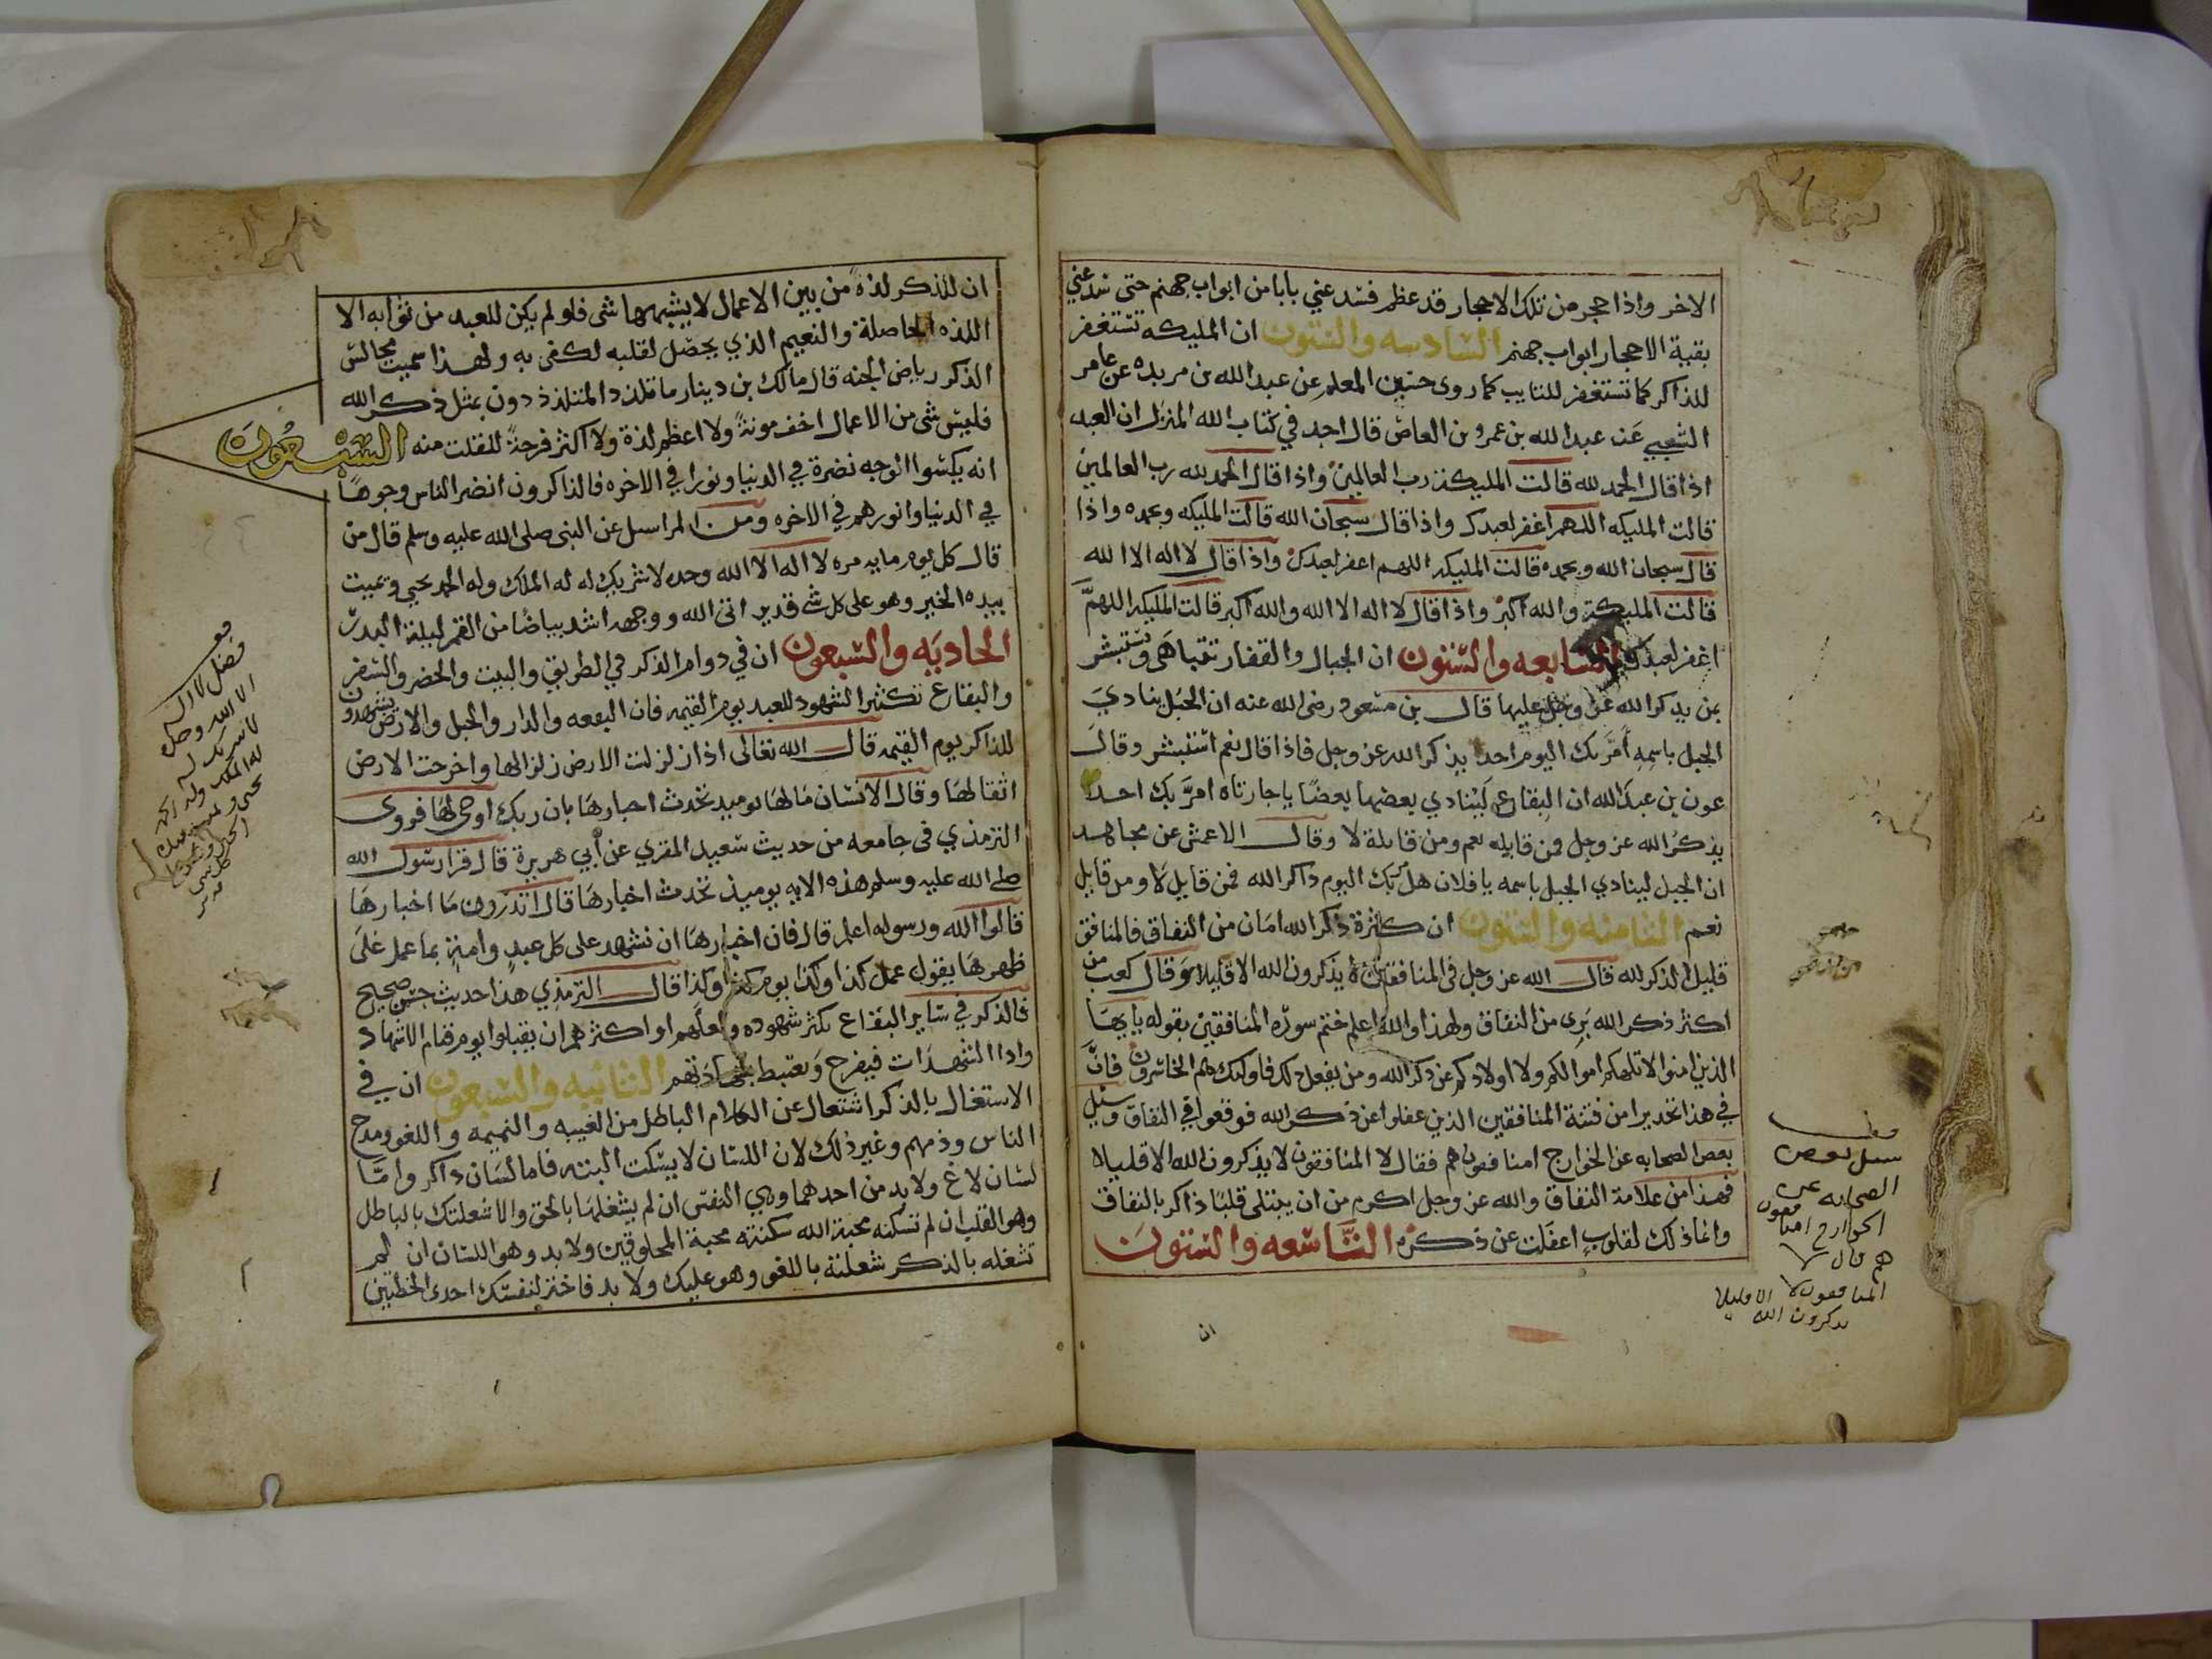 الاخر واذا حجر من تلك الاحجار قد عظم فسد عني بابا من ابواب جهنم حتى سد عني
بقية الاحجار ابواب جهنم السادسه والستون ان المليكه تستغفر
للذاكر كما تستغفر للتايب كما روى حسين المعلم عن عبد الله بن مريده عن عامر
الشعبي عن عبد الله بن عمرو بن العاص قال اجد في كتاب الله المنزل ان العبد
اذا قال الحمد لله قالت المليكة رب العالمين واذا قال الحمد لله رب العالمين
قالت المليكه اللهم اغفر لعبدك واذا قال سبحان الله قالت المليكه وبحمده واذا
قال سبحان الله وبحمده قالت المليكه اللهم اغفر لعبدك واذا قال لا اله الا الله
قالت المليكة والله اكبر واذا قال لا اله الا الله والله اكبر قالت المليكه اللهم
اغفر لعبدك السابعه والستون ان الجبال والقفار تتباهى وتستبشر
بمن يذكر الله عز وجل عليها قال بن مسعود رضى الله عنه ان الجبل ينادي
الجبل باسمه أمر بك اليوم احد يذكر الله عز وجل فاذا قال نعم استبشر وقال
عون بن عبد الله ان البقاع لينادي بعضها بعضا يا جارتاه امر بك احد
يذكر الله عز وجل فمن قايله نعم ومن قايلة لا وقال الاعمش عن مجاهد
ان الجبل لينادي الجبل باسمه يا فلان هل مر بك اليوم ذاكر الله فمن قايل لا ومن قايل
نعم الثامنه والستون ان كثرة ذكر الله امان من النفاق فالمنافق
قليل الذكر لله قال الله عز وجل في المنافقين لا يذكرون الله الا قليلا وقال كعب من
اكثر ذكر الله برى من النفاق ولهذا والله اعلم ختم سوره المنافقين بقوله يا يها
الذين امنوا لا تلهكم اموالكم ولا اولادكم عن ذكر الله ومن يفعل ذلك فاوليك هم الخاسرون فان
في هذا تحذيرا من فتنة المنافقين الذين غفلوا عن ذكر الله فوقعوا في النفاق وسئل
بعض الصحابه عن الخوارج امنافقون هم فقال لا المنافقون لا يذكرون الله الا قليلا
فهذا من علامة النفاق والله عز وجل اكرم من ان يبتلى قلبا ذاكر بالنفاق
وانما ذلك لقلوب اغفلت عن ذكره التاسعه والستون
ان
سئل بعض
الصحابه عن
الخوارج امنافقون
هم قال لا
المنافقون لا
يذكرون الله الا قليلا
ان للذكر لذة من بين الاعمال لا يشبهها شى فلو لم يكن للعبد من ثوابه الا
اللذه الحاصلة والنعيم الذي يحصل لقلبه لكفى به ولهذا سميت مجالس
الذكر رياض الجنه قال مالك بن دينار ما تلذذ المتلذذون بمثل ذكر الله
فليس شى من الاعمال اخف مونة ولا اعظم لذة ولا اكثر فرحة للقلب منه السبعون
انه يكسوا الوجه نضرة في الدنيا ونورا في الاخره فالذاكرون انضر الناس وجوها
في الدنيا وانورهم في الاخره ومن المراسيل عن النبى صلى الله عليه وسلم قال من
قال كل يوم مايه مره لا اله الا الله وحده لا شريك له له الملك وله الحمد يحيي ويميت
بيده الخير وهو على كل شى قدير اتى الله ووجهه اشد بياضا من القمر ليلة البدر
الحاديه والسبعون ان في دوام الذكر في الطريق والبيت والحضر والسفر
والبقاع تكثير الشهود للعبد يوم القيمه فان البقعه والدار والجبل والارض يشهدون
للذاكر يوم القيمه قال الله تعالى اذا زلزلت الارض زلزالها واخرجت الارض
اثقالها وقال الانسان ما لها يوميد تحدث اخبارها بان ربك اوحى لها فروى
الترمذي في جامعه من حديث سعيد المقري عن أبي هريرة قال قرا رسول الله
صلى الله عليه وسلم هذه الايه يوميذ تحدث اخبارها قال اتدرون ما اخبارها
قالوا الله ورسوله اعلم قال فان اخبارها ان تشهد على كل عبد وامة بما عمل على
ظهرها يقول عمل كذا وكذا يوم كذا وكذا قال الترمذي هذا حديث حسن صحيح
فالذكر في ساير البقاع يكثر شهوده ولعلهم او اكثرهم ان يقبلوا يوم قيام الاشهاد
وادا الشهدات فيفرح ويغتبط بشهادتهم الثانيه والسبعون ان في
الاشتغال بالذكر اشتغال عن الكلام الباطل من الغيبه والنميمه واللغو ومدح
الناس وذمهم وغير ذلك لان اللسان لا يسكت البته فاما لسان ذاكر واما
لسان لاغ ولا بد من احدهما وهي النفس ان لم يشغلها بالحق والا شغلتك بالباطل
وهو القلب ان لم تسكنه محبة الله سكنته محبة المخلوقين ولا بد وهو اللسان ان لم
تشغله بالذكر شغلته باللغو وهو عليك ولا بد فاختر لنفسك احدى الخطتين
فضل لا اله
الا الله وحده
لا شريك له
له الملك وله الحمد